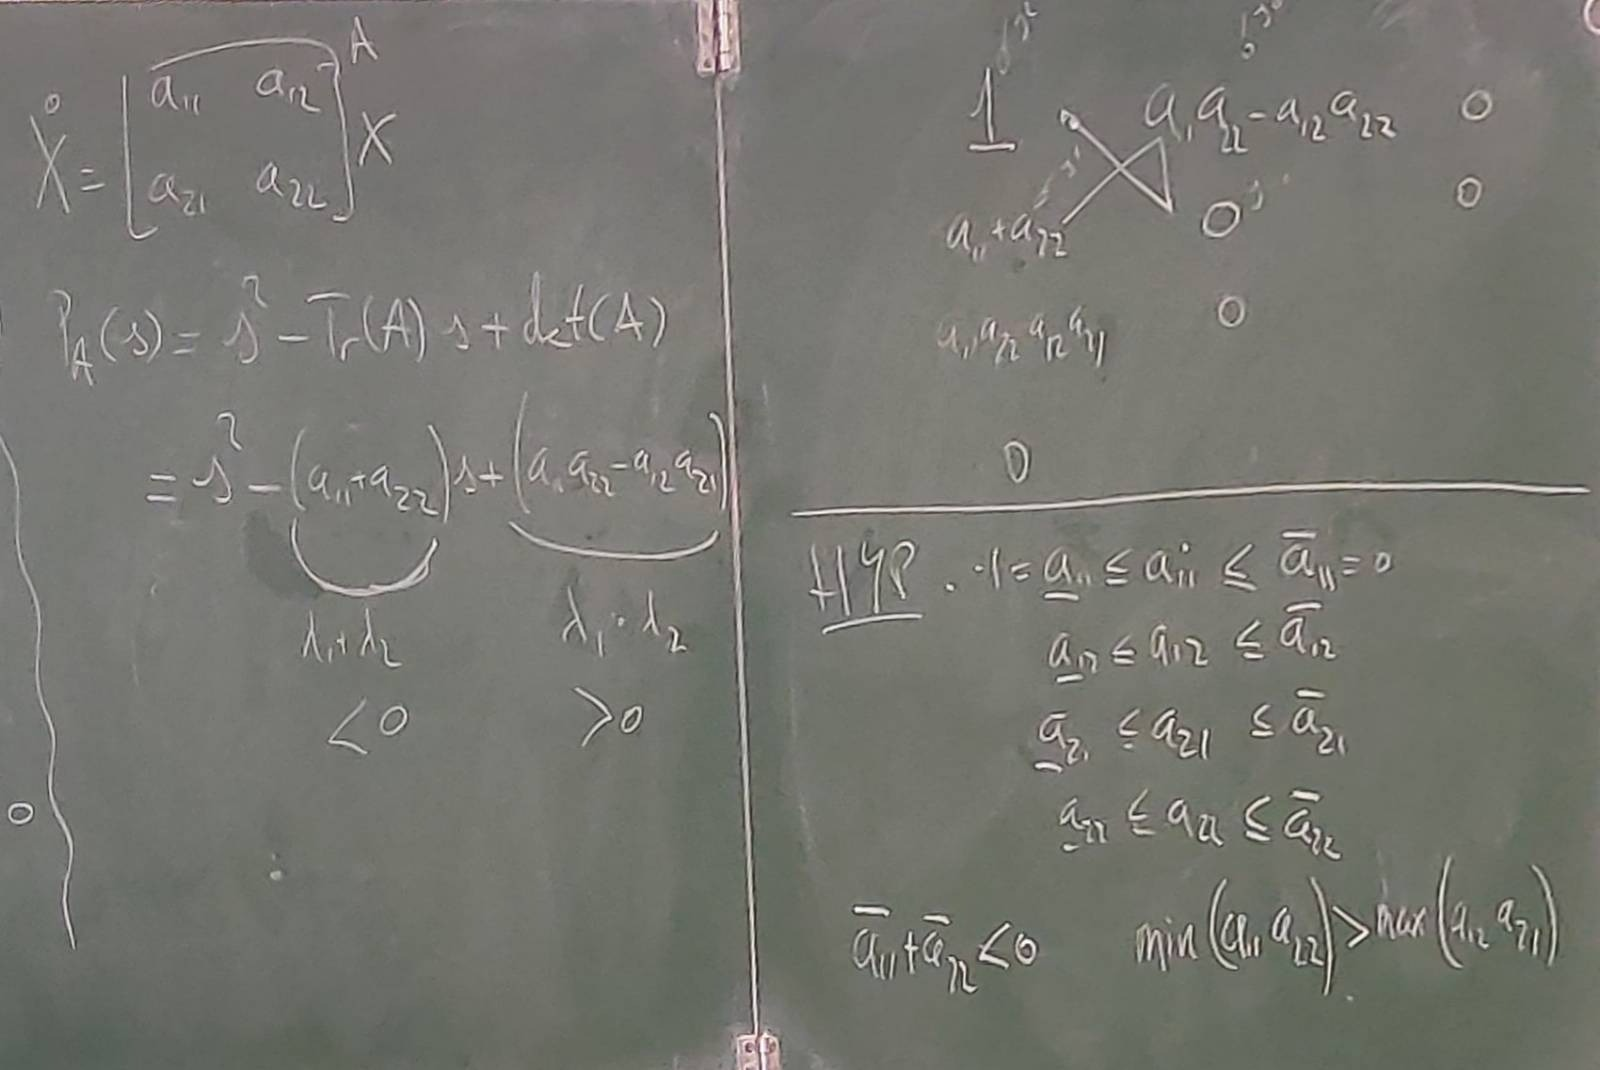 Ẋ = [a₁₁ a₁₂; a₂₁ a₂₂] X
A
P_A(s) = s² - Tr(A) s + det(A)
= s² - (a₁₁ + a₂₂) s + (a₁₁ a₂₂ - a₁₂ a₂₁)
λ₁ + λ₂ λ₁ · λ₂
< 0 > 0
0
1 a₁ a₂₂ - a₁₂ a₂₂ 0
a₁₁ + a₂₂ 0 0
a₁₁ a₂₂ a₁₂ a₂₁ 0
0
HYP . -1 = a̲₁₁ ≤ a₁₁ ≤ a̅₁₁ = 0
a̲₁₂ ≤ a₁₂ ≤ a̅₁₂
a̲₂₁ ≤ a₂₁ ≤ a̅₂₁
a̲₂₂ ≤ a₂₂ ≤ a̅₂₂
a̅₁₁ + a̅₂₂ < 0 min(a₁₁ a₂₂) > max(a₁₂ a₂₁)